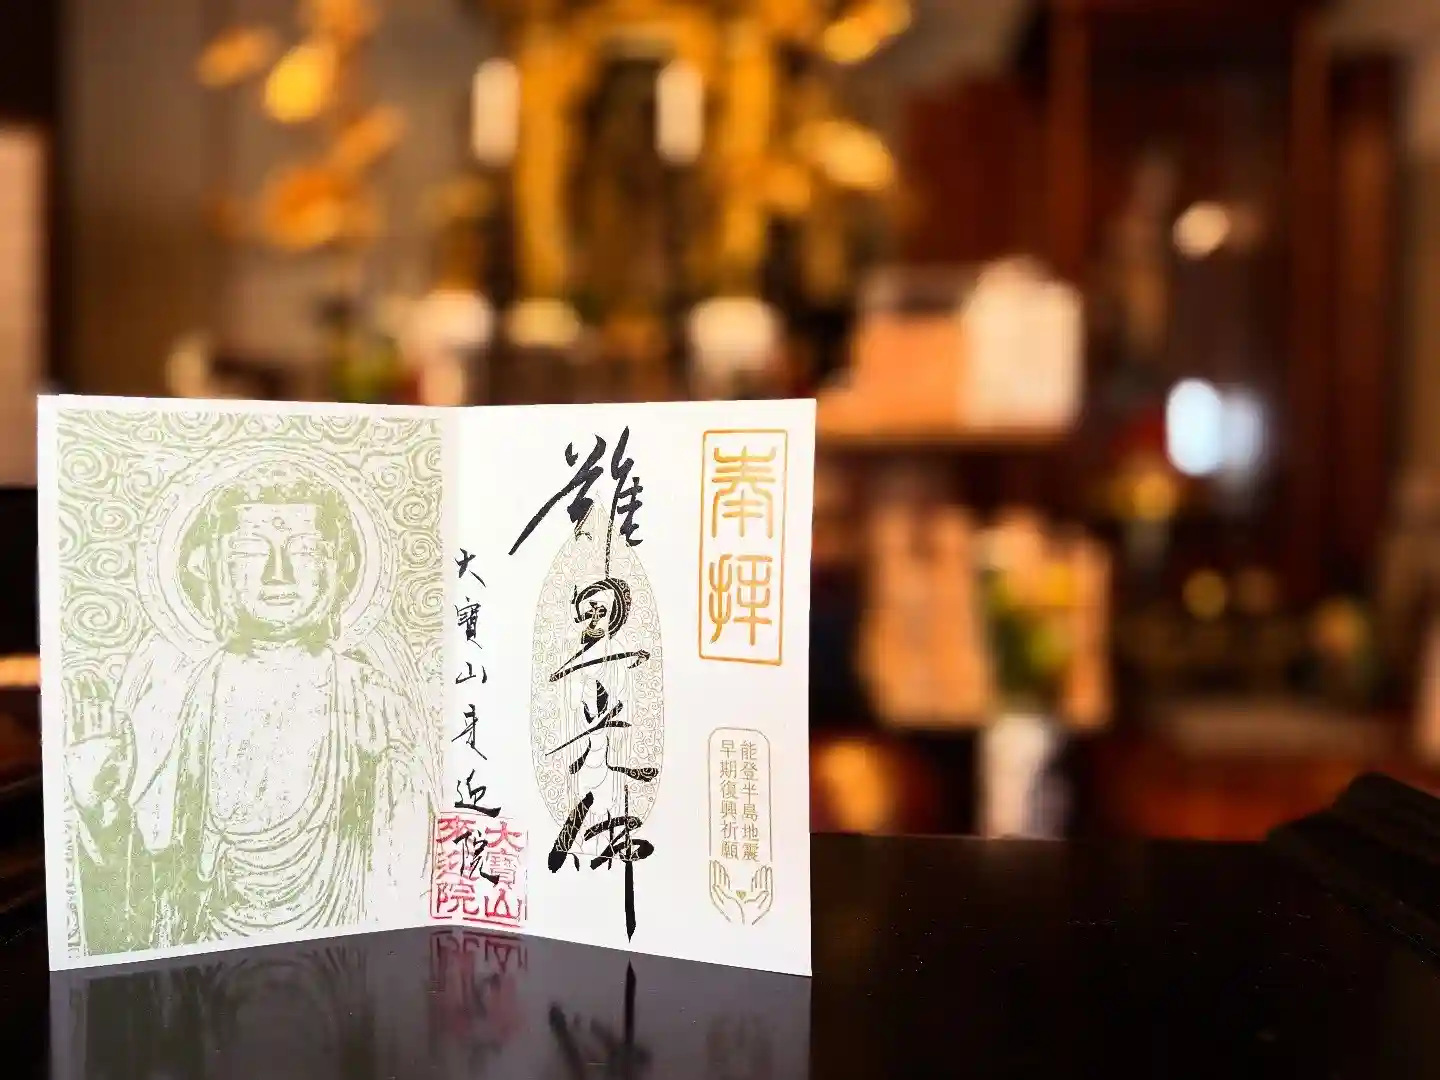 奉拝
能登半島地震
早期復興祈願
難思光佛
大寶山来迎院
大寶山
來迎院